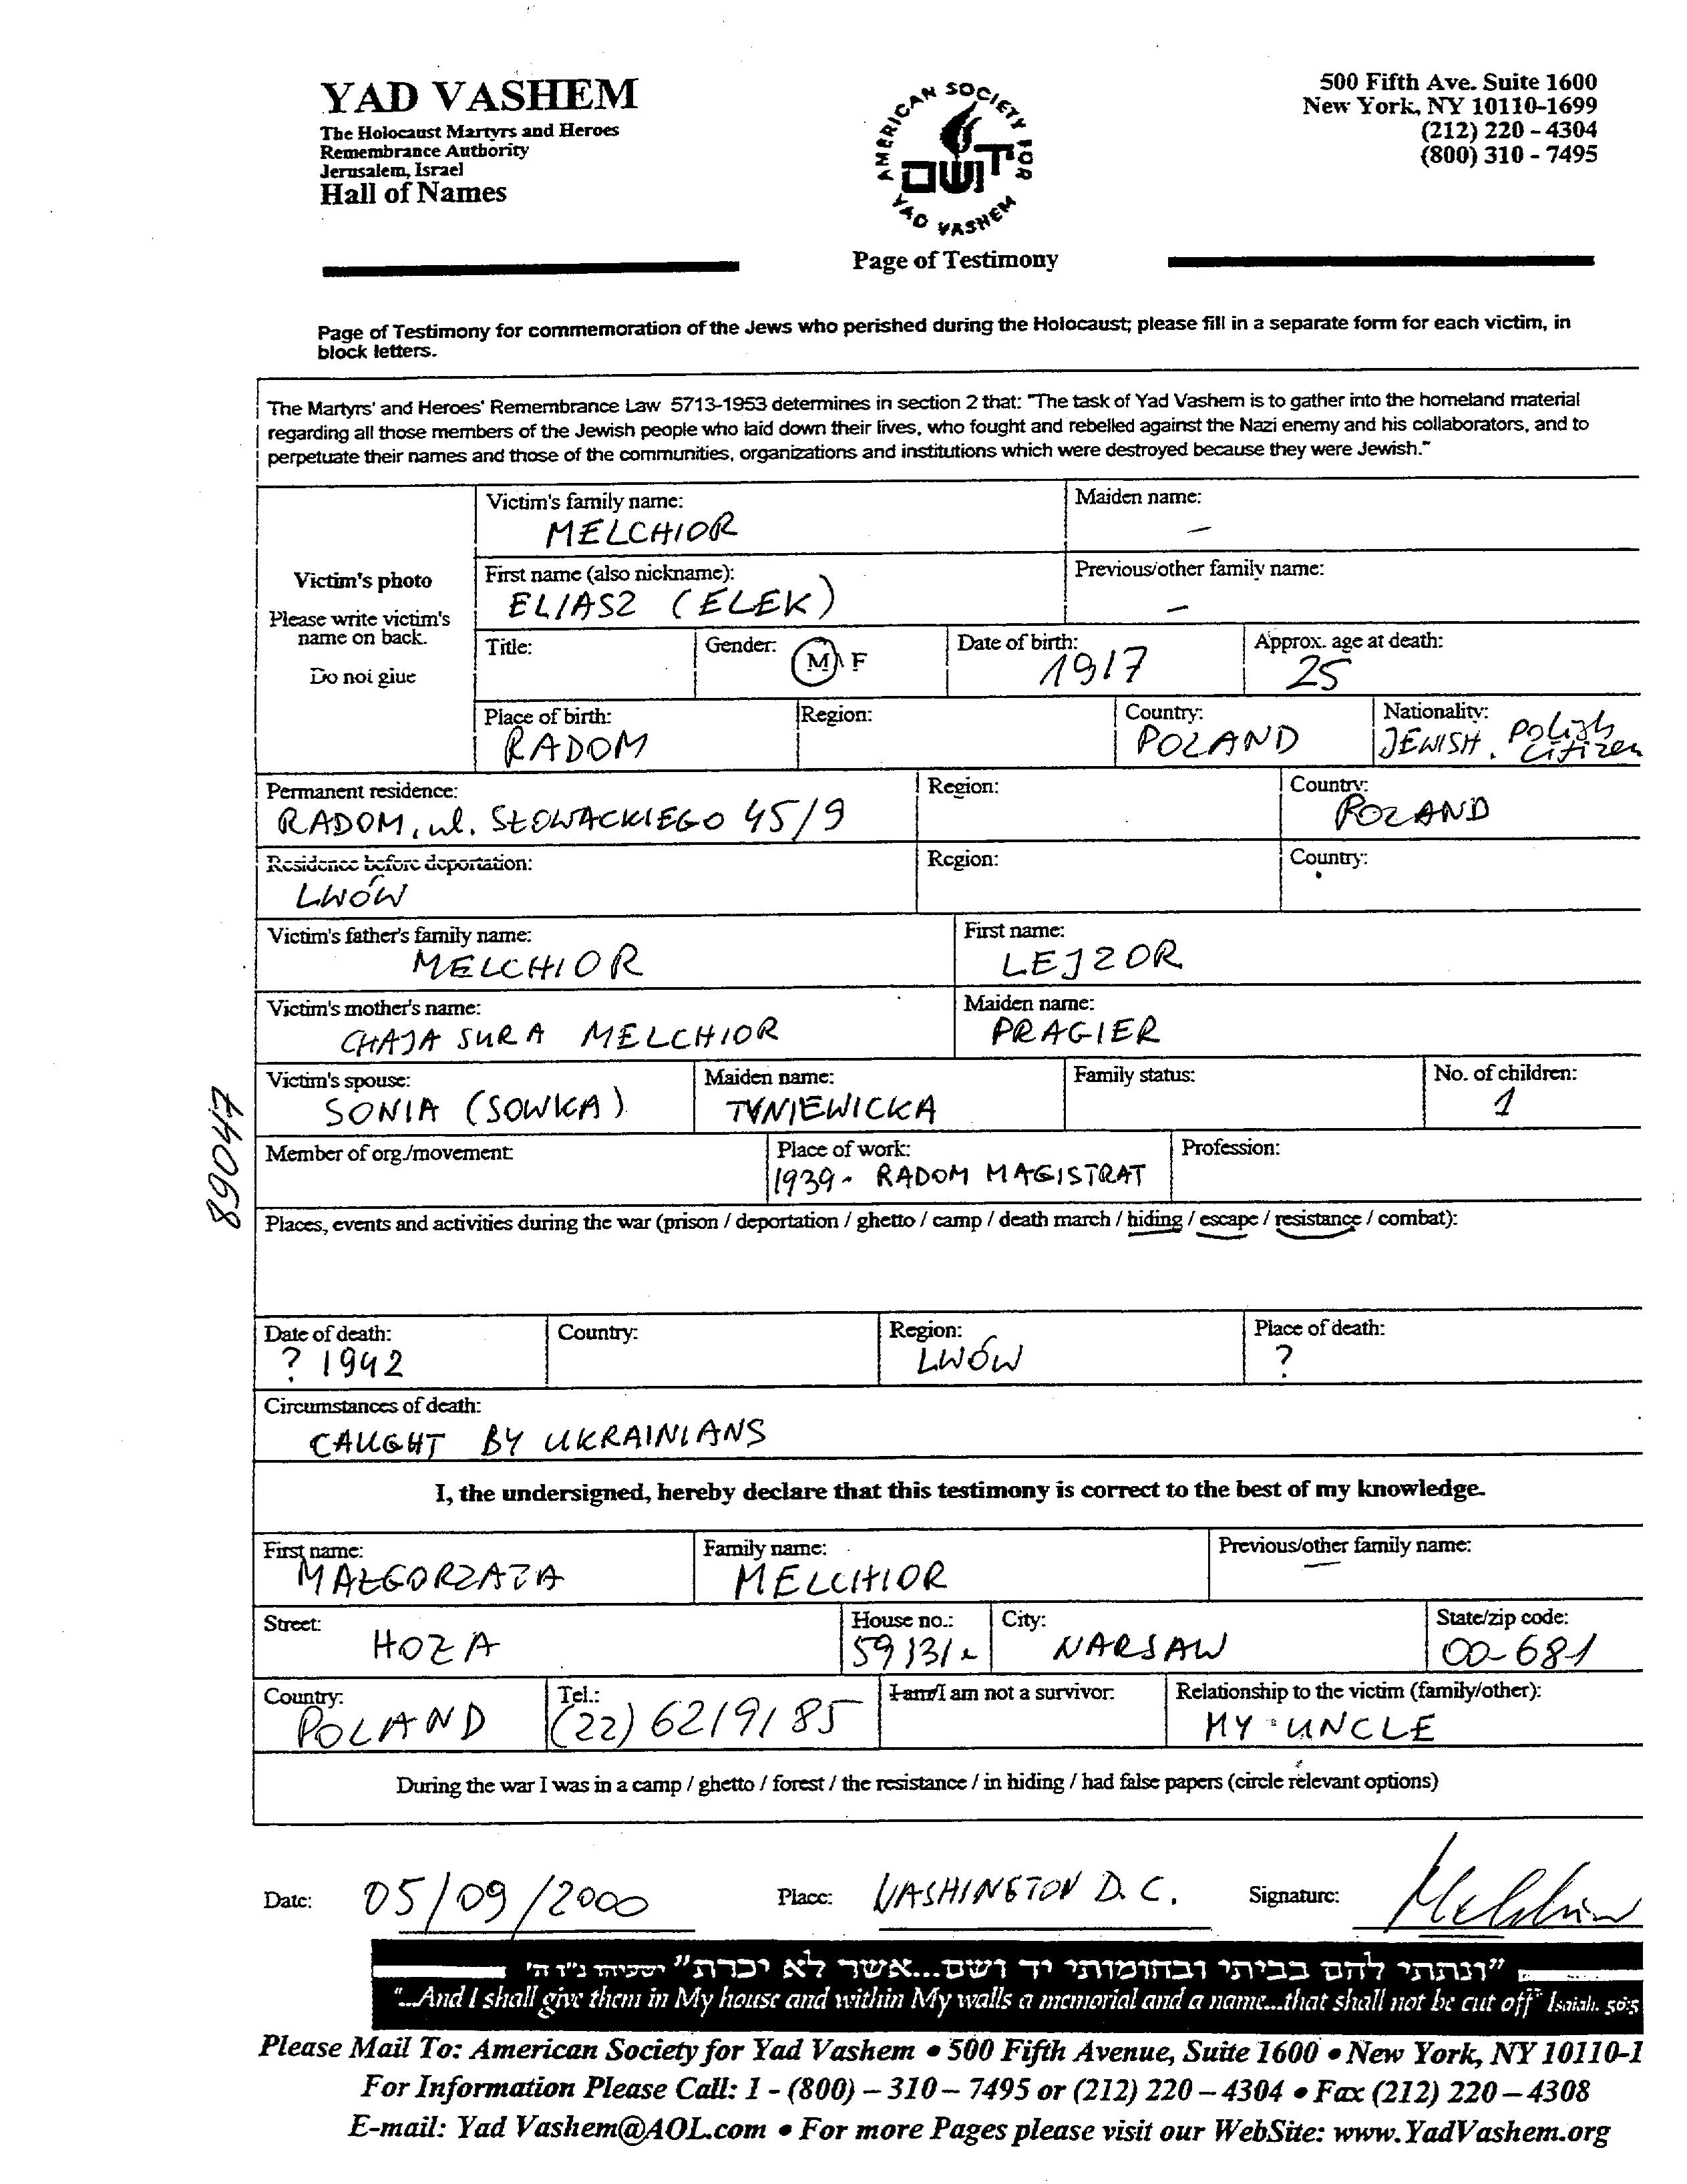 YAD VASHEM
The Holocaust Martyrs and Heroes
Remembrance Authority
Jerusalem, Israel
Hall of Names
AMERICAN SOCIETY FOR
YAD VASHEM
יד ושם
Page of Testimony
500 Fifth Ave. Suite 1600
New York, NY 10110-1699
(212) 220 - 4304
(800) 310 - 7495
Page of Testimony for commemoration of the Jews who perished during the Holocaust; please fill in a separate form for each victim, in
block letters.
The Martyrs' and Heroes' Remembrance Law 5713-1953 determines in section 2 that: "The task of Yad Vashem is to gather into the homeland material
regarding all those members of the Jewish people who laid down their lives, who fought and rebelled against the Nazi enemy and his collaborators, and to
perpetuate their names and those of the communities, organizations and institutions which were destroyed because they were Jewish."
Victim's photo
Please write victim's
name on back.
Do not glue
Victim's family name:
MELCHIOR
Maiden name:
–
First name (also nickname):
ELIASZ (ELEK)
Previous/other family name:
–
Title:
Gender: M \ F
Date of birth:
1917
Approx. age at death:
25
Place of birth:
RADOM
Region:
Country:
POLAND
Nationality:
JEWISH. Polish
citizen
Permanent residence:
RADOM, ul. SŁOWACKIEGO 45/9
Region:
Country:
POLAND
Residence before deportation:
LWÓW
Region:
Country:
Victim's father's family name:
MELCHIOR
First name:
LEJZOR
Victim's mother's name:
CHAJA SURA MELCHIOR
Maiden name:
PRAGIER
Victim's spouse:
SONIA (SOWKA)
Maiden name:
TYNIEWICKA
Family status:
No. of children:
1
Member of org./movement:
Place of work:
1939 - RADOM MAGISTRAT
Profession:
89047
Places, events and activities during the war (prison / deportation / ghetto / camp / death march / hiding / escape / resistance / combat):
Date of death:
? 1942
Country:
Region:
LWÓW
Place of death:
?
Circumstances of death:
CAUGHT BY UKRAINIANS
I, the undersigned, hereby declare that this testimony is correct to the best of my knowledge.
First name:
MAŁGORZATA
Family name:
MELCHIOR
Previous/other family name:
–
Street:
HOZA
House no.:
59
City:
WARSAW
State/zip code:
00-681
Country:
POLAND
Tel.:
(22) 6219185
I am/I am not a survivor.
Relationship to the victim (family/other):
MY UNCLE
During the war I was in a camp / ghetto / forest / the resistance / in hiding / had false papers (circle relevant options)
Date: 05/09/2000
Place: WASHINGTON D.C.
Signature: Melchior
"ונתתי להם בביתי ובחומותי יד ושם...אשר לא יכרת" ישעיהו נ"ו ה'
"...And I shall give them in My house and within My walls a memorial and a name...that shall not be cut off" Isaiah. 56:5
Please Mail To: American Society for Yad Vashem • 500 Fifth Avenue, Suite 1600 • New York, NY 10110-1
For Information Please Call: 1 - (800) – 310 – 7495 or (212) 220 – 4304 • Fax (212) 220 – 4308
E-mail: Yad Vashem@AOL.com • For more Pages please visit our WebSite: www.YadVashem.org